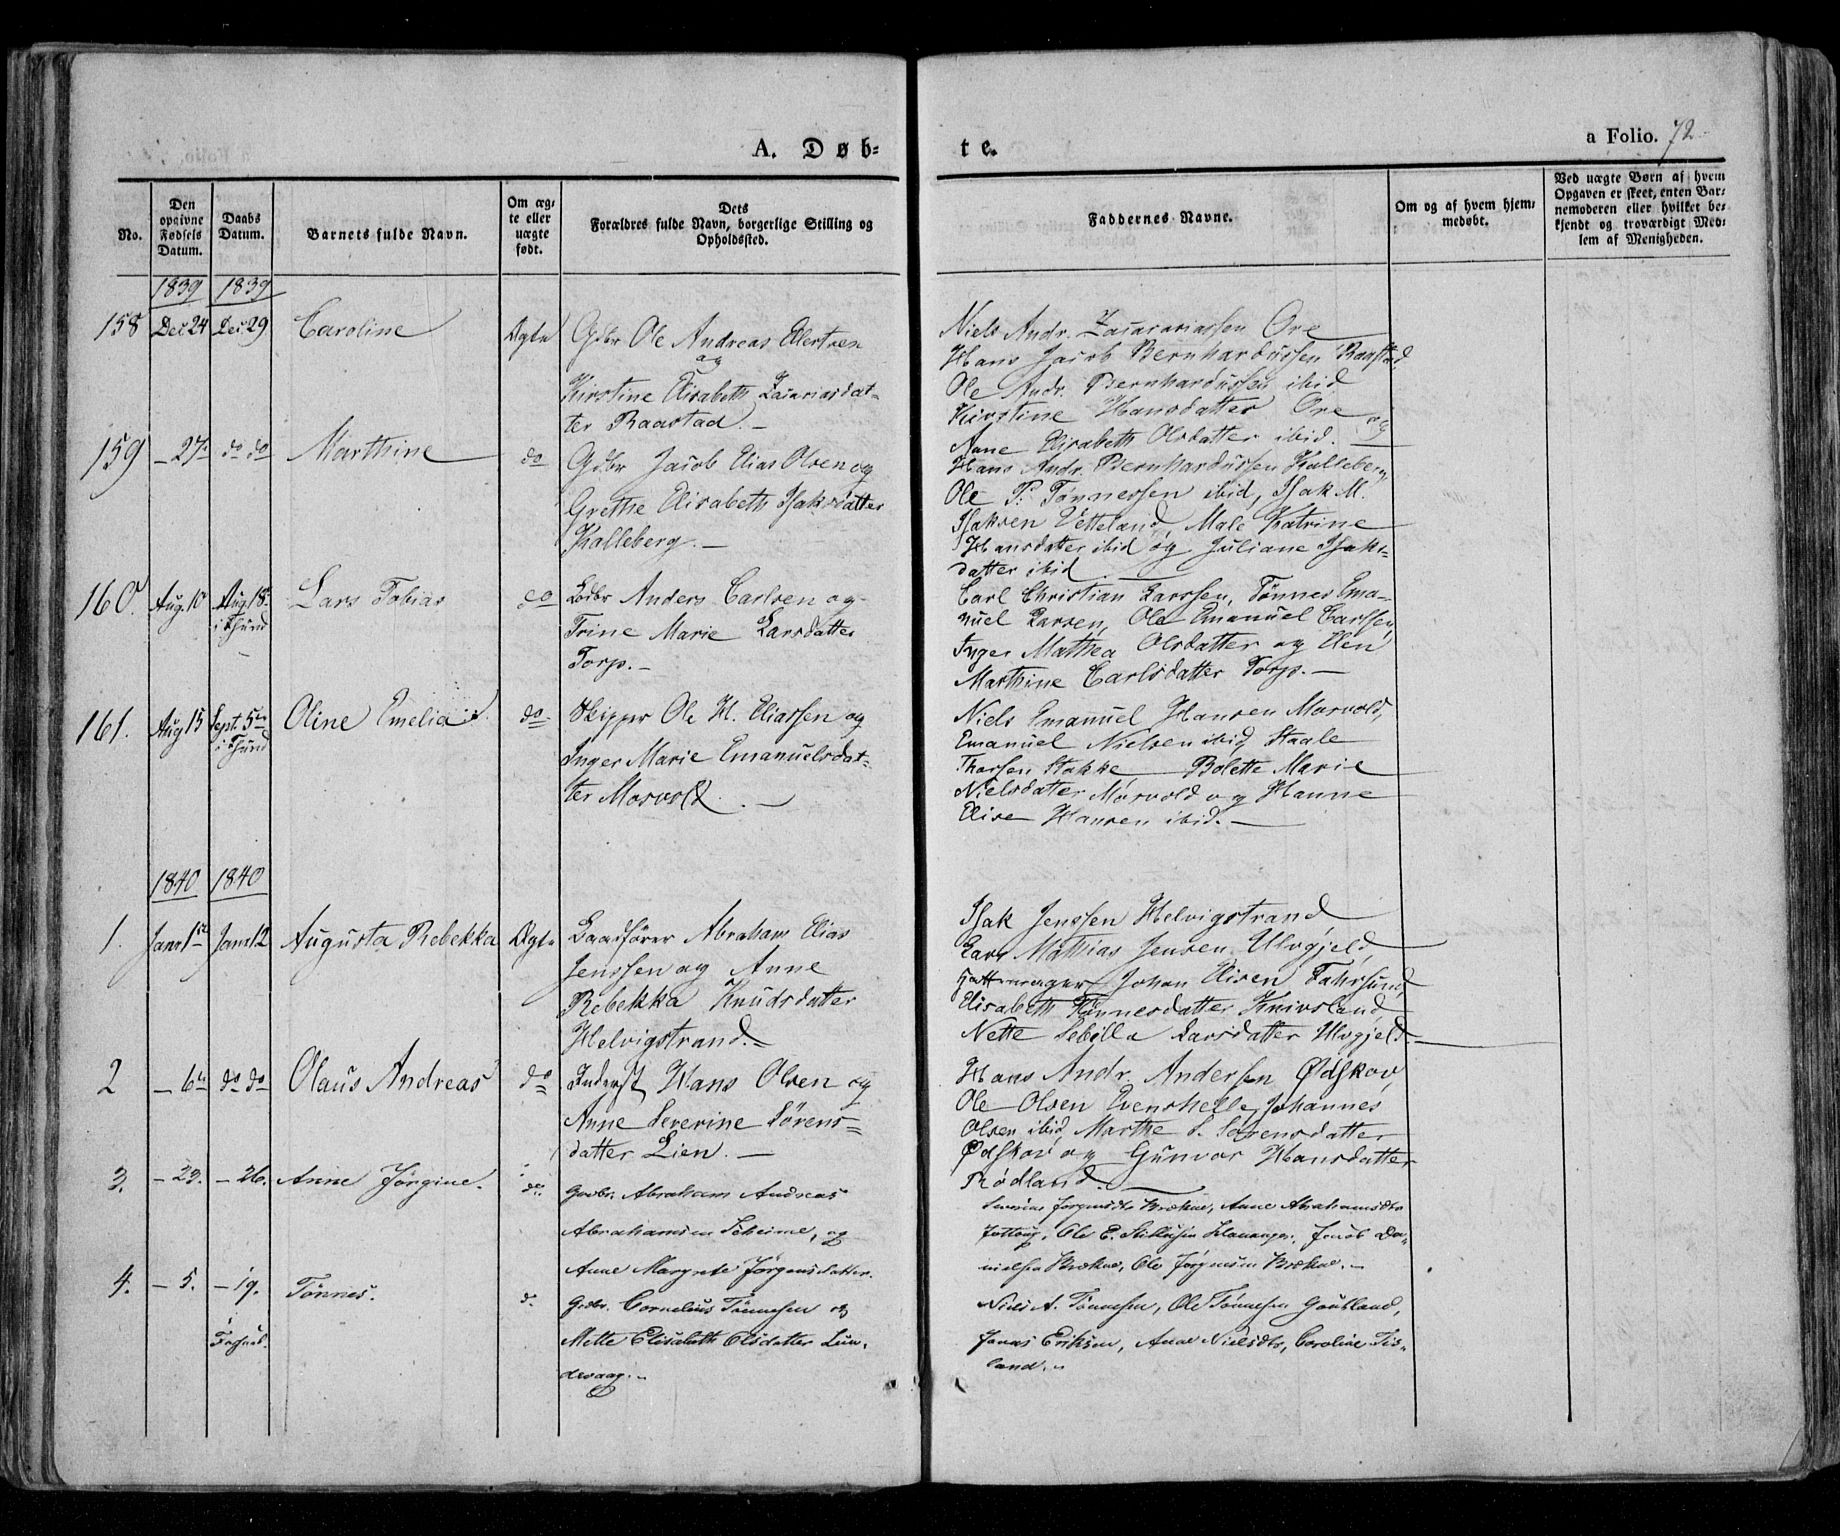 A. Døb-
te.
a Folio. 72
No.
Den opgivne Fødsels Datum.
Daabs Datum.
Barnets fulde Navn.
Om ægte eller uægte født.
Dets Forældres fulde Navn, borgerlige Stilling og Opholdssted.
Faddernes Navne.
Om og af hvem hjemmedøbt.
Ved uægte Børn af hvem Opgaven er skeet, enten Barnemoderen eller hvilket bekjendt og troværdigt Medlem af Menigheden.
1839 1839
158 Dec. 24 Dec. 29 Caroline Ægte
Gdbr Ole Andreas Elertsen
og
Kirstine Elisabeth Zacariasdat-
ter Raastad.
Niels Andr. Zacariassen Ore
Hans Jacob Bernhardussen Raastad,
Ole Andr. Bernhardussen ibid
Kirstine Hansdatter Ore og
Anne Elisabeth Olsdatter ibid.
159 - 27 do do Marthine do
Gdbr Jacob Elias Olsen og
Grethe Elisabeth Isaksdatter
Kalleberg.
Hans Andr. Bernhardussen Kalleberg
Ole P. Tønnessen ibid, Isak M.
Isaksen Vetteland, Male Katrine
Hansdatter ibid og Juliane Isaks-
datter ibid
160. Aug. 10 Aug. 18 Lars Tobias do
i Sund
Gdbr Anders Carlsen og
Trine Marie Larsdatter
Torp.
Carl Christian Larssen, Tønnes Ema-
nuel Larsen, Ole Emanuel Carlssen,
Inger Mathea Olsdatter og Elen
Marthine Carlsdatter Torp.
161. Aug 15 Sept. 5 Oline Emelia do
i Sund
Skipper Ole H. Eliassen og
Inger Marie Emanuelsdat-
ter Mosvold.
Niels Emanuel Hansen Mosvold,
Emanuel Nielsen ibid, Staale
Thorsen Stakke Bolette Marie
Nielsdatter Mosvold og Hanne
Elise Hansen ibid.
1840 1840
1. Janr 1 Janr 12 Augusta Rebekka Ægte
Baadfører Abraham Elias
Jenssen og Anne
Rebekka Knudsdatter
Helvigstrand.
Isak Jenssen Helvigstrand
Lars Mathias Jensen Ulvgjeld
Hattemager Johan Elisen Fahrsund,
Elisabeth Tønnesdatter Knivsland
Nette Sebilla Larsdatter Ulvgjeld
2 - 6 do do Olaus Andreas do
Inderst Hans Olsen og
Anne Severine Sørens-
datter Lien.
Hans Andr. Andersen Ødskov,
Ole Olsen Evenshelle Johannes
Olsen ibid, Marthe S. Sørensdatter
Ødskov og Gunvor Hansdatter
Rødland.
3. - 23. - 26. Anne Jørgine. do
Gdbr. Abraham Andreas
Abrahamsen Scheime, og
Anne Margrete Jørgensdatter.
Jørgensdtr Brække, Anne Abrahamsdtr
Ole E. Jacob Da-
nielsen Brække, Ole Jørgensen Brække.
4. - 5. - 19. Tønnes. d.
Gdbr. Cornelius Tønnesen og
Mette Elisabeth Olsdatter Lun-
devaag.
Niels A. Tønnesen, Ole Tønnesen Gousland,
Jonas Eriksen, Anne Nielsdtr, Caroline Jis-
land.